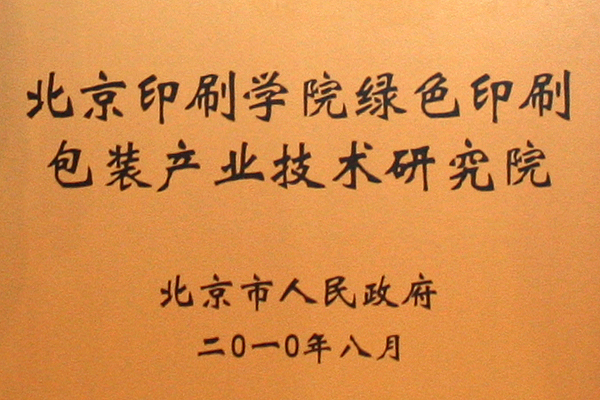 北京印刷学院绿色印刷
包装产业技术研究院
北京市人民政府
二0一0年八月